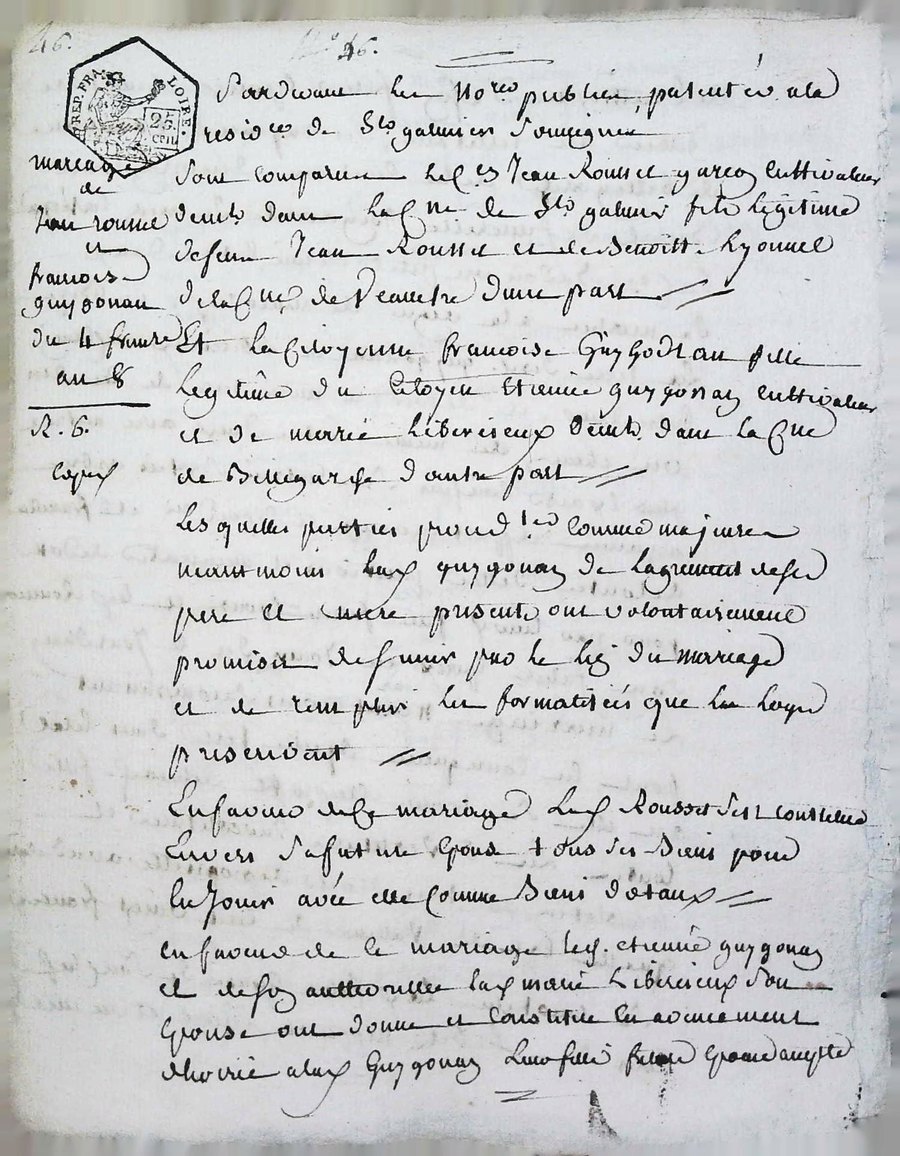 46.
N° 46.
REP. FRA.
LOIRE.
25
CEN.
mariage
de
Jean rousset
et
francoise
guygonan
du 4 frimre
an 8
R. 6.
Copié
Pardevant les No.res publics, patentés ala
resid.ce de St. galmier soussignés
sont comparus le C.en Jean Rousset garcon cultivateur
demt. dans la Cne. de St. galmier fils légitime
defeu Jean Rousset et de Benoitte Lyonnet
dela Cne. de Veauche dune part
Et la Citoyenne francoise Guygonan fille
legitime du Citoyen Etienne guygonan cultivateur
et de marie Libercieux demt. dans la Cne
de Bellegarde dautre part
Lesquelles parties proced.tes comme majeures
neantmoins la C. guygonan de lagrement deses
pere et mere presents ont volontairement
promises desunir par le lien du mariage
et de remplir les formalités que les loyx
prescrivent
En faveur de Ce mariage Le C. Rousset sest constitué
Envers sa future Epouse tous ses Biens pour
En Jouir avec elle Comme Biens dotaux
en faveur de ce mariage le C. etienne guygonan
et de son authorité la C. marie Libercieux son
Epouse ont donné et Constitué en avancement
dhoirie ala C. Guygonan leur fille future Epouse